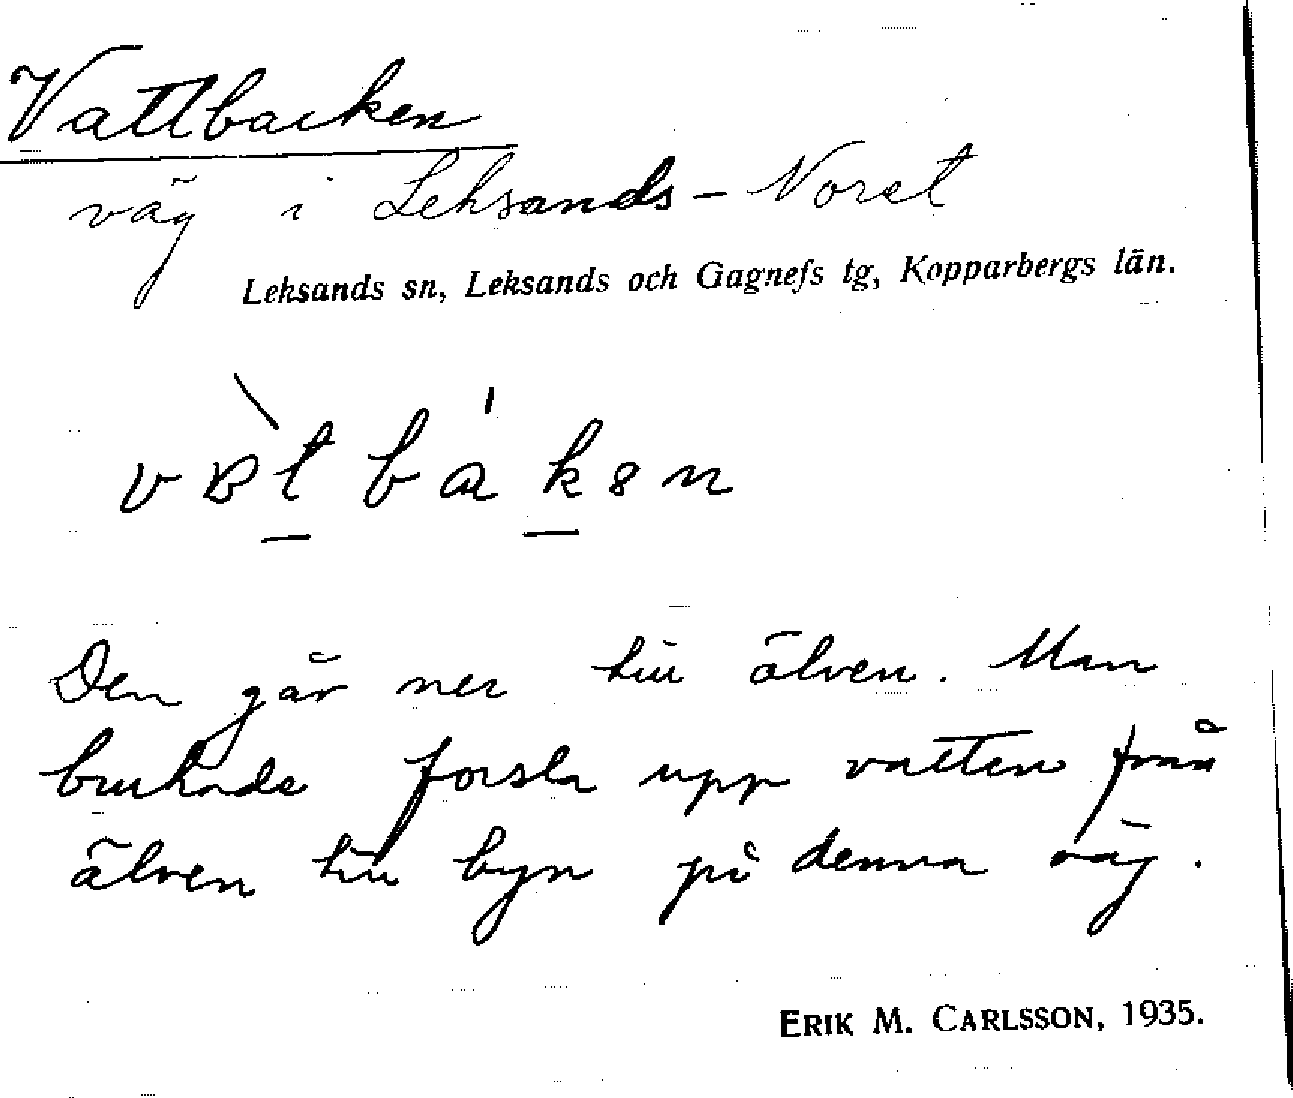 Vattbacken
väg i Leksands-Noret
Leksands sn, Leksands och Gagnefs tg, Kopparbergs län.
Den går ner till älven. Man
brukade forsla upp vatten från
älven till byn på denna väg.
ERIK M. CARLSSON, 1935.